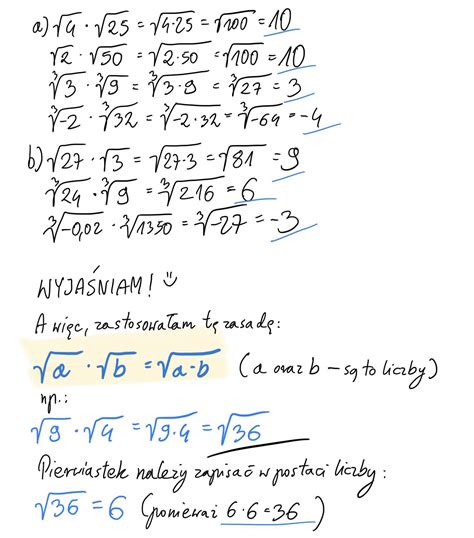 a) √4 · √25 = √4·25 = √100 = 10
√2 · √50 = √2·50 = √100 = 10
∛3 · ∛9 = ∛3·9 = ∛27 = 3
∛-2 · ∛32 = ∛-2·32 = ∛-64 = -4
b) √27 · √3 = √27·3 = √81 = 9
∛24 · ∛9 = ∛216 = 6
∛-0,02 · ∛1350 = ∛-27 = -3
WYJAŚNIAM! :)
A więc, zastosowałam tę zasadę:
√a · √b = √a·b (a oraz b - są to liczby)
np.:
√9 · √4 = √9·4 = √36
Pierwiastek należy zapisać w postaci liczby:
√36 = 6 (ponieważ 6·6=36)